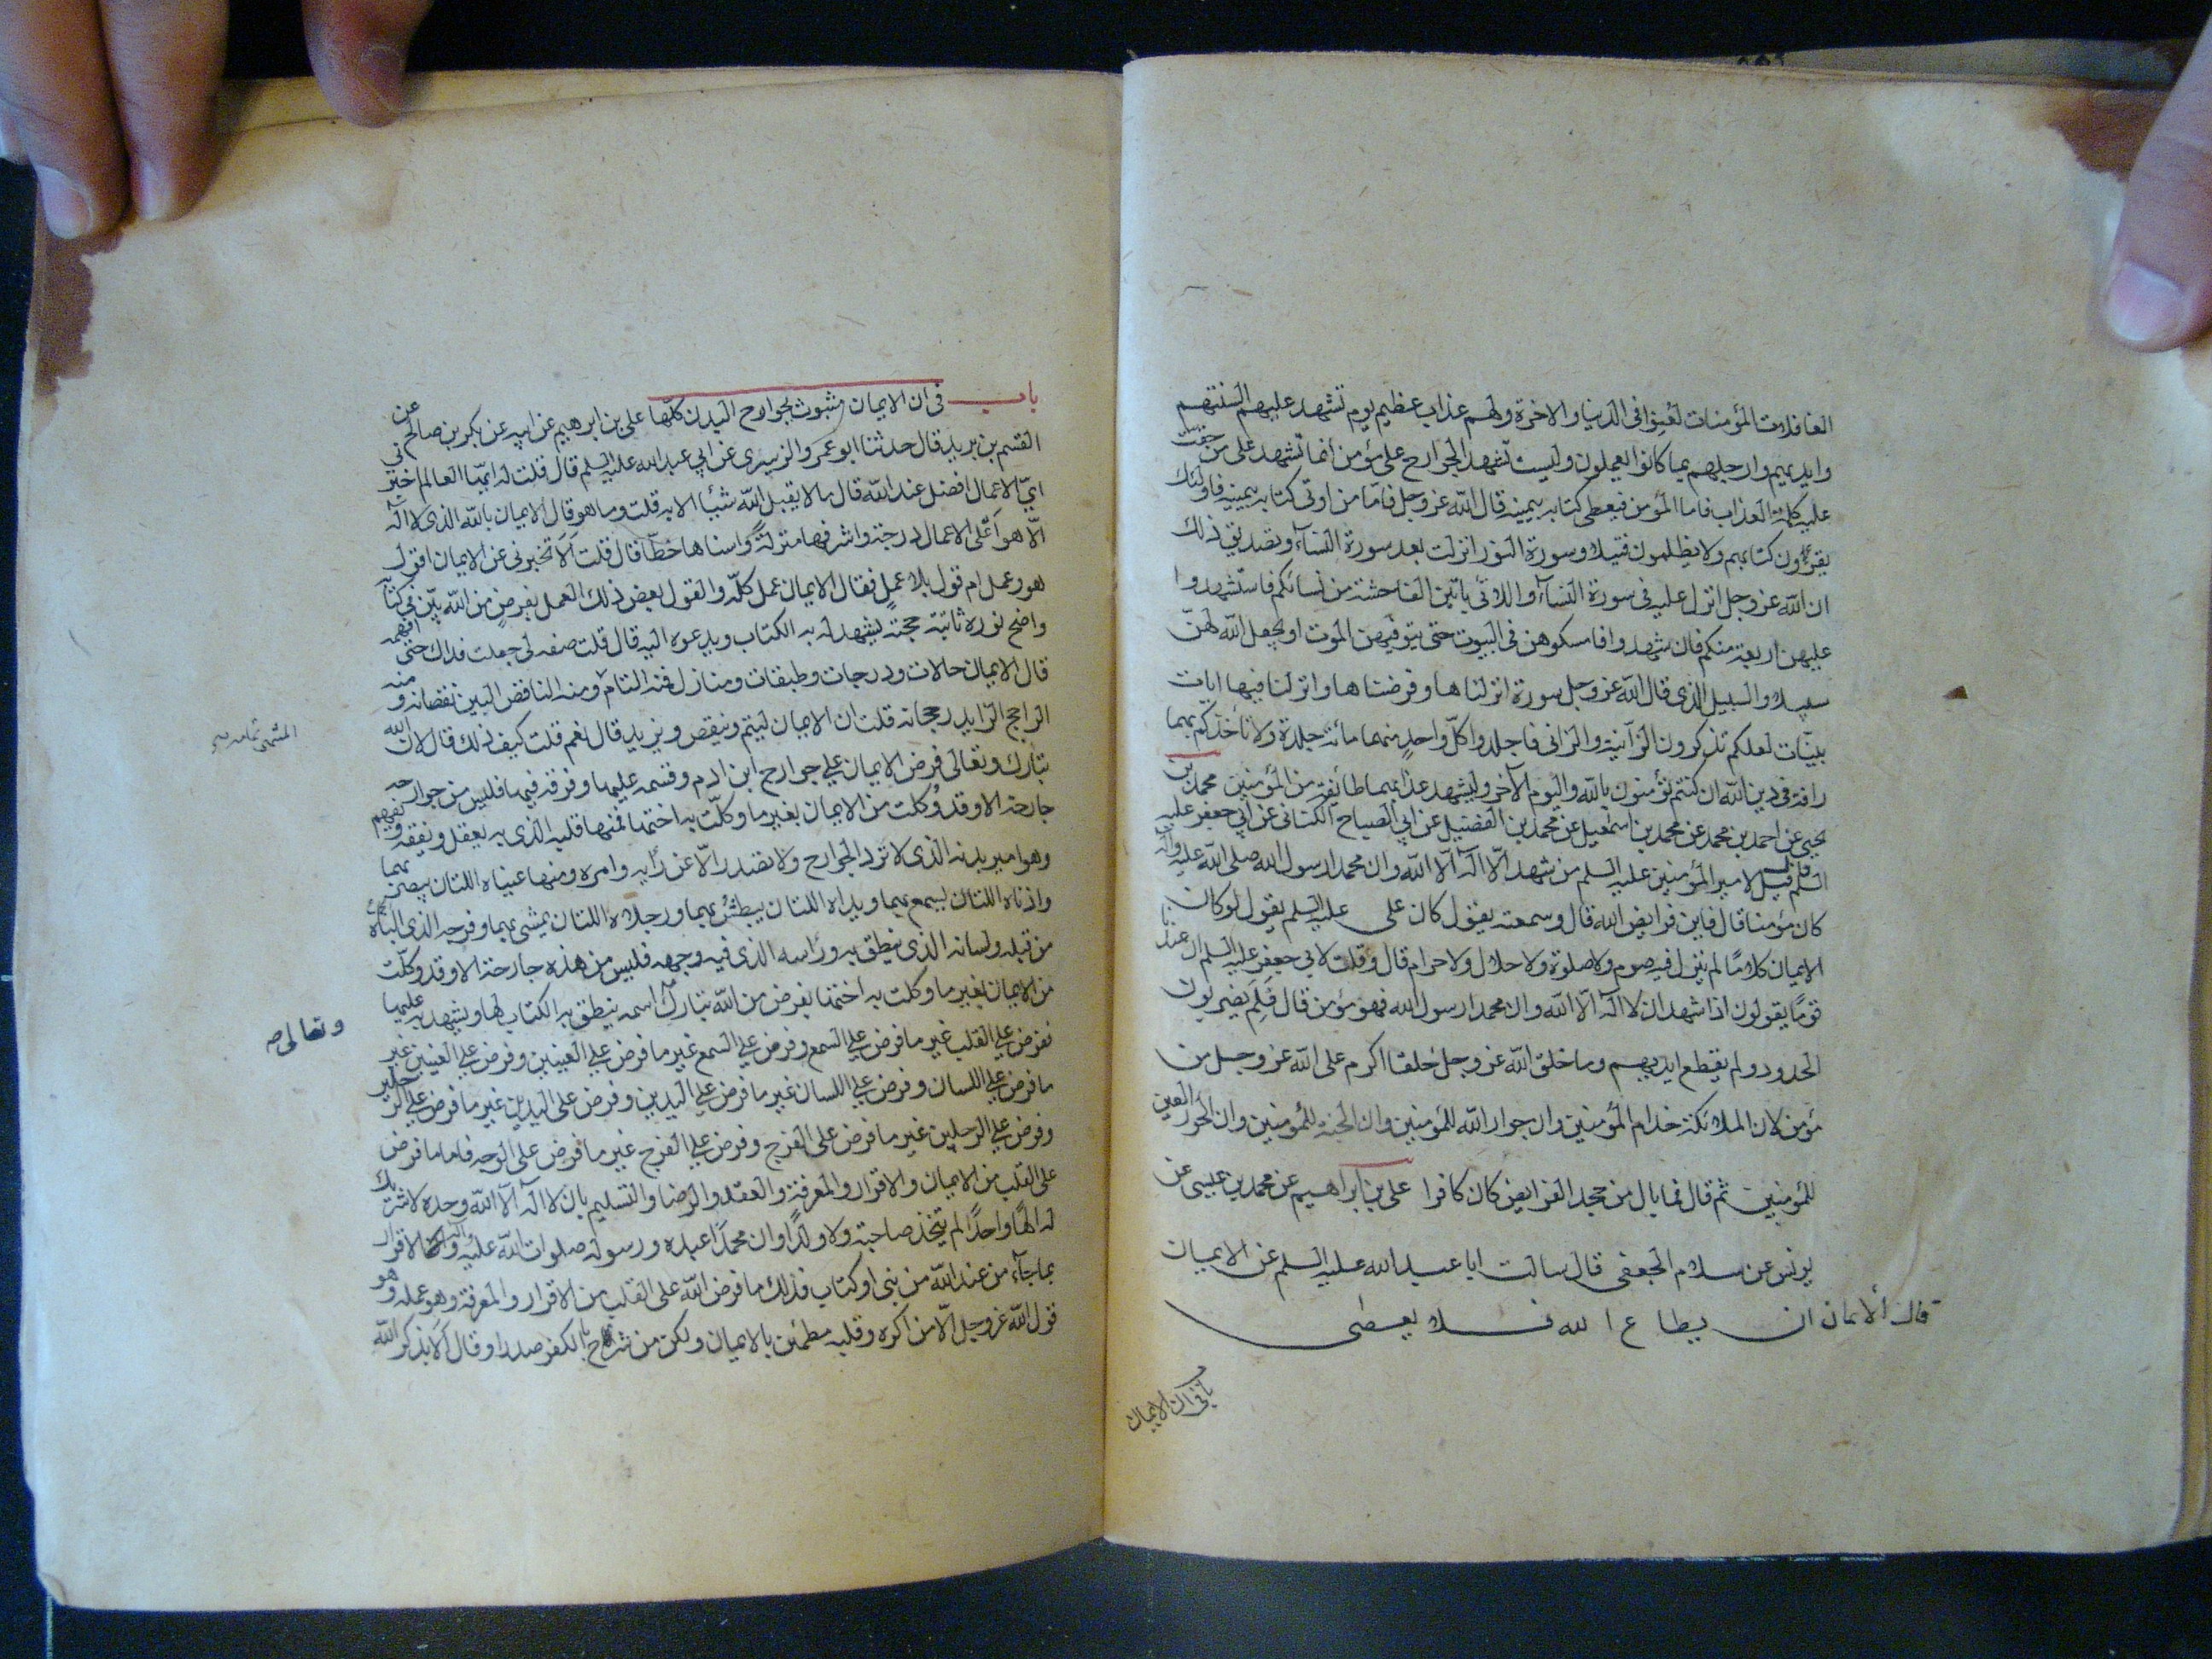 الغافلات المؤمنات لعنوا فى الدنيا والاخرة ولهم عذاب عظيم يوم تشهد عليهم السنتهم
وايديهم وارجلهم بما كانوا يعملون وليست تشهد الجوارح على مؤمن انما تشهد على من حقت
عليه كلمة العذاب فاما المؤمن فيعطى كتابه بيمينه قال الله عز وجل فامّا من اوتى كتابه بيمينه فاولئك
يقرؤون كتابهم ولا يظلمون فتيلا وسورة النور انزلت بعد سورة النسآء وتصديق ذلك
ان الله عز وجل انزل عليه فى سورة النسآء واللاتى ياتين الفاحشة من نسائكم فاستشهدوا
عليهن اربعة منكم فان شهدوا فامسكوهن فى البيوت حتى يتوفيهن الموت او يجعل الله لهنّ
سبيلا والسبيل الذى قال الله عز وجل سورة انزلناها وفرضناها وانزلنا فيها ايات
بينات لعلكم تذكرون الزانية والزانى فاجلدوا كلّ واحد منهما مائة جلدة ولا تأخذكم بهما
رافة فى دين الله ان كنتم تؤمنون بالله واليوم الآخر وليشهد عذابهما طائفة من المؤمنين محمد بن
يحيى عن احمد بن محمد عن محمد بن اسمعيل عن محمد بن الفضيل عن ابى الصباح الكنانى عن ابى جعفر عليه
السلم قال قيل لامير المؤمنين عليه السلم من شهد الّا اله الّا الله وان محمدا رسول الله صلى الله عليه وآله
كان مؤمنا قال فاين فرايض الله قال وسمعته يقول كان على عليه السلم يقول لو كان
الايمان كلامًا لم ينزل فيه صوم ولا صلوة ولا حلال ولا حرام قال وقلت لابى جعفر عليه السلم ان عندنا
قومًا يقولون اذا شهد ان لا اله الّا الله وان محمدا رسول الله فهو مؤمن قال فَلِمَ يضربون
الحدود ولم يقطع ايديهم وما خلق الله عز وجل خلقا اكرم على الله عز وجل من
مؤمن لان الملائكة خدام المؤمنين وان جوار الله للمؤمنين وان الجنة للمؤمنين وان الحور العين
للمؤمنين ثم قال فما بال من جحد الفرايض كان كافرا على بن ابراهيم عن محمد بن عيسى عن
يونس عن سلام الجعفى قال سالت ابا عبد الله عليه السلم عن الايمان
قال الايمان ان يطاع الله فلا يعصى
باب فى ان الايمان
باب فى ان الايمان مثبوث لجوارح البدن كلّها على بن ابرهيم عن ابيه عن بكر بن صالح عن
القسم بن بريد قال حدثنا ابو عمرو الزبيرى عن ابى عبد الله عليه السلم قال قلت له ايّها العالم خبرنى
اىّ الاعمال افضل عند الله قال ما لا يقبل الله شيأ الا به قلت وما هو قال الايمان بالله الذى لا اله
الّا هو اعلى الاعمال درجة واشرفها منزلةً واسناها حظّا قال قلت اَلَا تخبرنى عن الايمان اقول
هو وعمل ام قول بلا عملٍ فقال الايمان عمل كلّه والقول بعض ذلك العمل بفرض من الله بيّن فى كتابه
واضح نوره ثابتة حجته يشهد له به الكتاب ويدعوه اليه قال قلت صفه لى جعلت فداك حتى افهمه
قال الايمان حالات ودرجات وطبقات ومنازل فمنه التام ومنه الناقص البين نقصانه ومنه
الراجح الزايد رجحانه قلت ان الايمان ليتم وينقص ويزيد قال نعم قلت كيف ذلك قال لان الله
تبارك وتعالى فرض الايمان على جوارح ابن ادم وقسمه عليها وفرقه فيها فليس من جوارحه
جارحة الا وقد وُكلت من الايمان بغير ما وكلّت به اختها فمنها قلبه الذى به يعقل ويفقه ويفهم
وهو امير بدنه الذى لا ترد الجوارح ولا تصدر الّا عن رأيه وامره ومنها عيناه اللتان يبصر بهما
واذناه اللتان يسمع بهما ويداه اللتان يبطش بهما ورجلاه اللتان يمشى بهما وفرجه الذى الباه
من قبله ولسانه الذى ينطق به ورأسه الذى فيه وجهه فليس من هذه جارحة الا وقد وكلّت
من الايمان بغير ما وكلت به اختها بفرض من الله تبارك اسمه ينطق به الكتاب لها ويشهد به عليها
وتعالى صح
ففرض على القلب غير ما فرض على السمع وفرض على السمع غير ما فرض على العينين وفرض على العينين غير
ما فرض على اللسان وفرض على اللسان غير ما فرض على اليدين وفرض على اليدين غير ما فرض على الرجلين
وفرض على الرجلين غير ما فرض على الفرج وفرض على الفرج غير ما فرض على الوجه فاما ما فرض
على القلب من الايمان والاقرار والمعرفة والعقد والرضا والتسليم بان لا اله الّا الله وحده لا شريك
له الهًا واحدًا لم يتخذ صاحبة ولا ولدًا وان محمدًا عبده ورسوله صلوات الله عليه وآله والاقرار
بما جآء من عند الله من نبى او كتاب فذلك ما فرض الله على القلب من الاقرار والمعرفة وهو عمله وهو
قول الله عز وجل الّا من اكره وقلبه مطمئن بالايمان ولكن من شرح بالكفر صدرا وقال اَلَا بذكر الله